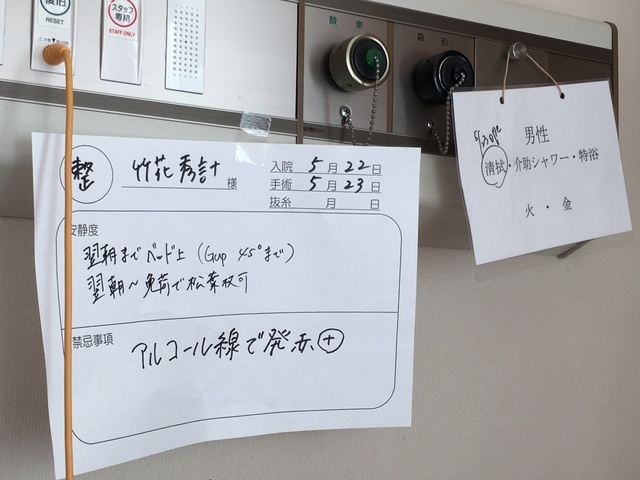 復旧
RESET
スタッフ
専用
STAFF ONLY
酸素
吸引
整
竹花秀計 様
入院 5月22日
手術 5月23日
抜糸 月 日
安静度
翌朝までベッド上 (Gup 45°まで)
翌朝〜免荷で松葉杖可
禁忌事項
アルコール線で発赤(+)
男性
清拭・介助シャワー・特浴
火・金